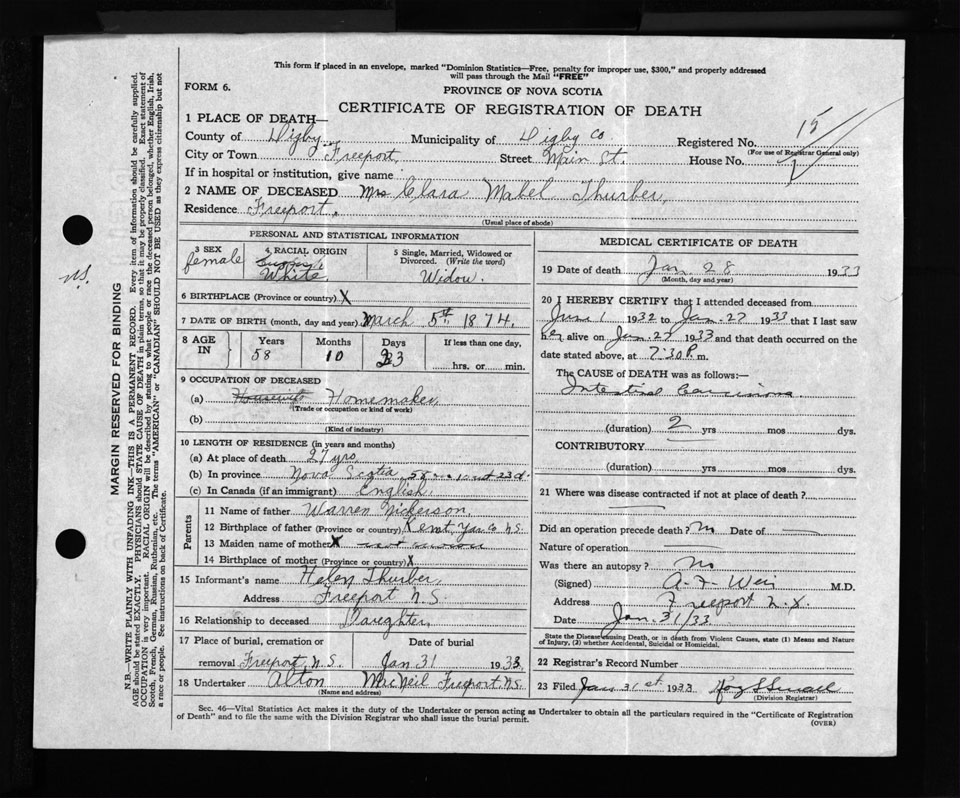 This form if placed in an envelope, marked "Dominion Statistics—Free, penalty for improper use, $300," and properly addressed
will pass through the Mail "FREE"
FORM 6.
PROVINCE OF NOVA SCOTIA
CERTIFICATE OF REGISTRATION OF DEATH
1 PLACE OF DEATH—
County of Digby Municipality of Digby Co Registered No. 15
(For use of Registrar General only)
City or Town Freeport Street Main St. House No.
If in hospital or institution, give name
2 NAME OF DECEASED Mrs Clara Mabel Thurber
Residence Freeport.
(Usual place of abode)
PERSONAL AND STATISTICAL INFORMATION
3 SEX 4 RACIAL ORIGIN 5 Single, Married, Widowed or Divorced. (Write the word)
female White Widow.
6 BIRTHPLACE (Province or country) X
7 DATE OF BIRTH (month, day and year) March 5th 1874.
8 AGE IN Years Months Days If less than one day,
58 10 23 hrs. or min.
9 OCCUPATION OF DECEASED
(a) Housewife Homemaker
(Trade or occupation or kind of work)
(b)
(Kind of industry)
10 LENGTH OF RESIDENCE (in years and months)
(a) At place of death 27 yrs
(b) In province Nova Scotia 58 23d
(c) In Canada (if an immigrant) English
Parents
11 Name of father Warren Nickerson
12 Birthplace of father (Province or country) Kemt Yar. Co N.S.
13 Maiden name of mother X not known
14 Birthplace of mother (Province or country) X
15 Informant's name Helen Thurber
Address Freeport N.S.
16 Relationship to deceased Daughter
17 Place of burial, cremation or Date of burial
removal Freeport, N.S. Jan 31 1933
18 Undertaker Alton MacNeil Freeport, N.S.
(Name and address)
MEDICAL CERTIFICATE OF DEATH
19 Date of death Jan. 28 1933
(Month, day and year)
20 I HEREBY CERTIFY that I attended deceased from
June 1 1932 to Jan. 27 1933 that I last saw
her alive on Jan 27 1933 and that death occurred on the
date stated above, at 7:30 P. m.
The CAUSE OF DEATH was as follows:—
Intestinal Carcinoma.
(duration) 2 yrs mos dys.
CONTRIBUTORY
(duration) yrs mos dys.
21 Where was disease contracted if not at place of death?
Did an operation precede death? No Date of
Nature of operation
Was there an autopsy? No
(Signed) A. F. Weir M.D.
Address Freeport N.S.
Date Jan. 31/33
State the Disease causing Death, or in death from Violent Causes, state (1) Means and Nature
of Injury, (2) whether Accidental, Suicidal or Homicidal.
22 Registrar's Record Number
23 Filed Jan 31st 1933
(Division Registrar)
Sec. 46—Vital Statistics Act makes it the duty of the Undertaker or person acting as Undertaker to obtain all the particulars required in the "Certificate of Registration
of Death" and to file the same with the Division Registrar who shall issue the burial permit.
(OVER)
MARGIN RESERVED FOR BINDING
N.B.—WRITE PLAINLY WITH UNFADING INK—THIS IS A PERMANENT RECORD. Every item of information should be carefully supplied.
AGE should be stated EXACTLY. PHYSICIANS should STATE CAUSE OF DEATH in plain terms, so that it may be properly classified. Exact statement of
OCCUPATION is very important. RACIAL ORIGIN will be described by stating to what people or race the deceased person belonged, whether English, Irish,
Scotch, French, German, Russian, Ruthenian, etc. The terms "AMERICAN" or "CANADIAN" SHOULD NOT BE USED as they express citizenship but not
a race or people. See instructions on back of Certificate.